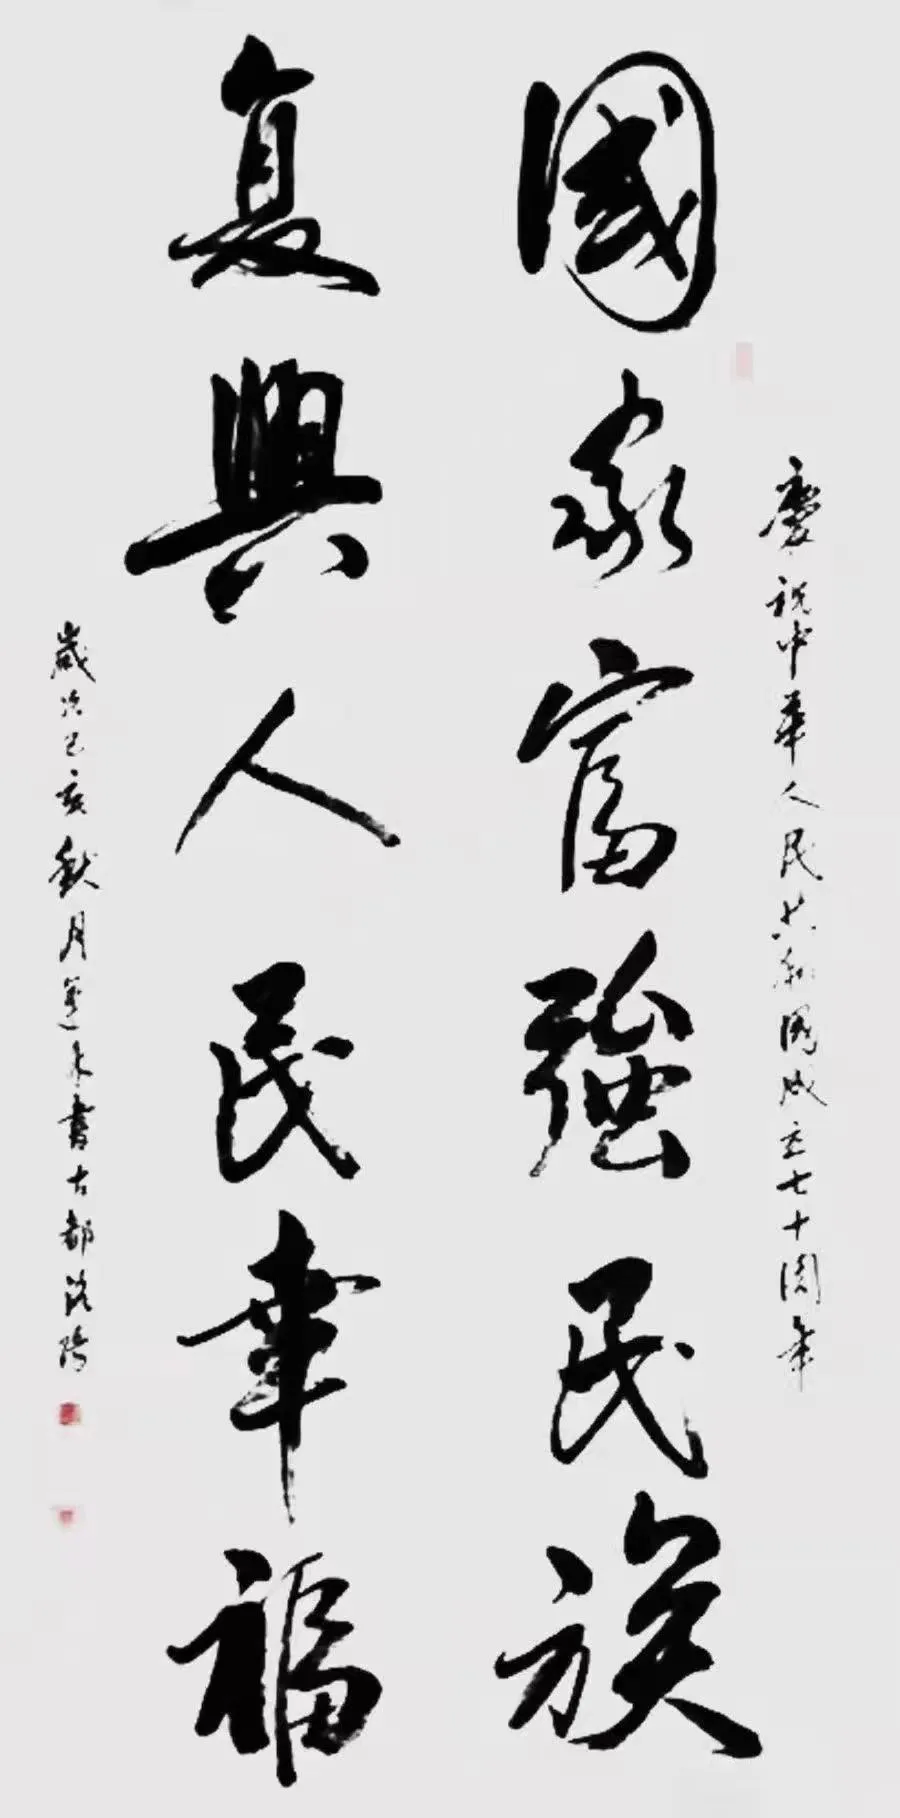 慶祝中华人民共和國成立七十周年
國家富強民族
复興人民幸福
歳次己亥秋月蓮木書古都洛陽